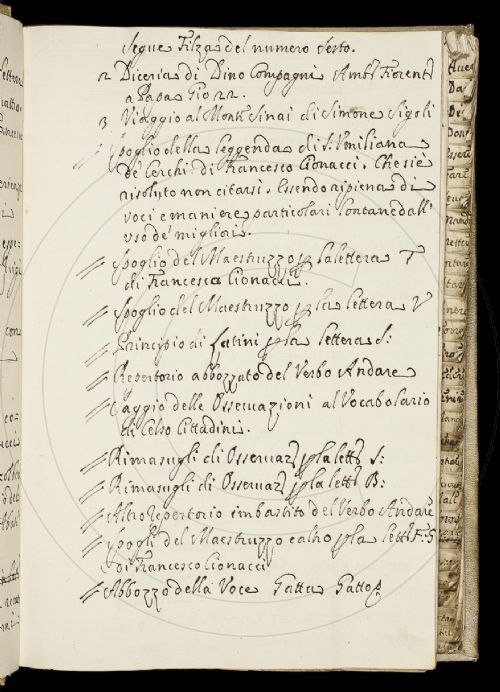 Segue Filza del numero Sesto.
2. Diceria di Dino Compagni Amb.r Fiorent.o
a Papa Gio 22.
3. Viaggio al Monte Sinai di Simone Sigoli
Spoglio della leggenda di S. Umiliana
de Cerchi di Francesco Cionacci. Che si è
risoluto non citarsi. Essendo ripiena di
voci e maniere particolari lontane dall'
uso de' migliori.
Spoglio del Maestruzzo p la lettera T
di Francesco Cionacci.
Spoglio del Maestruzzo p la lettera V
Principio di Latini p la lettera S:
Repertorio abbozzato del Verbo Andare
Saggio delle Osservazioni al Vocabolario
di Celso Cittadini.
Rimasugli di Osservaz. p la lett. S:
Rimasugli di Osservaz. p la lett. B:
Altro repertorio imbastito del Verbo Andare
Spogli del Maestruzzo e altro p la lett. F: G
di Francesco Cionacci
Abbozzo della Voce Gatta Gatto